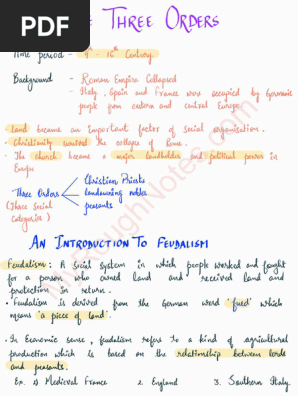 PDF
THREE ORDERS
Time period - 9th - 16th Century
Background - Roman Empire Collapsed
- Italy, Spain and France was occupied by Germanic
people from eastern and central Europe.
Land became an important factor of social organisation.
• Christianity survived the collapse of Rome.
• The church became a major landholder and political power in
Europe
Three Orders
(Three Social
Categories)
Christian Priests
landowning nobles
peasants
AN INTRODUCTION TO FEUDALISM
Feudalism : A Social system in which people worked and fought
for a person who owned land and received land and
protection in return.
• Feudalism is derived from the German word 'feud' which
means 'a piece of land'.
• In Economic sense, feudalism refers to a kind of agricultural
production which is based on the relationship between lords
and peasants.
Ex. 1) Medieval France 2. England 3. Southern Italy.
MyRoughNotes.com